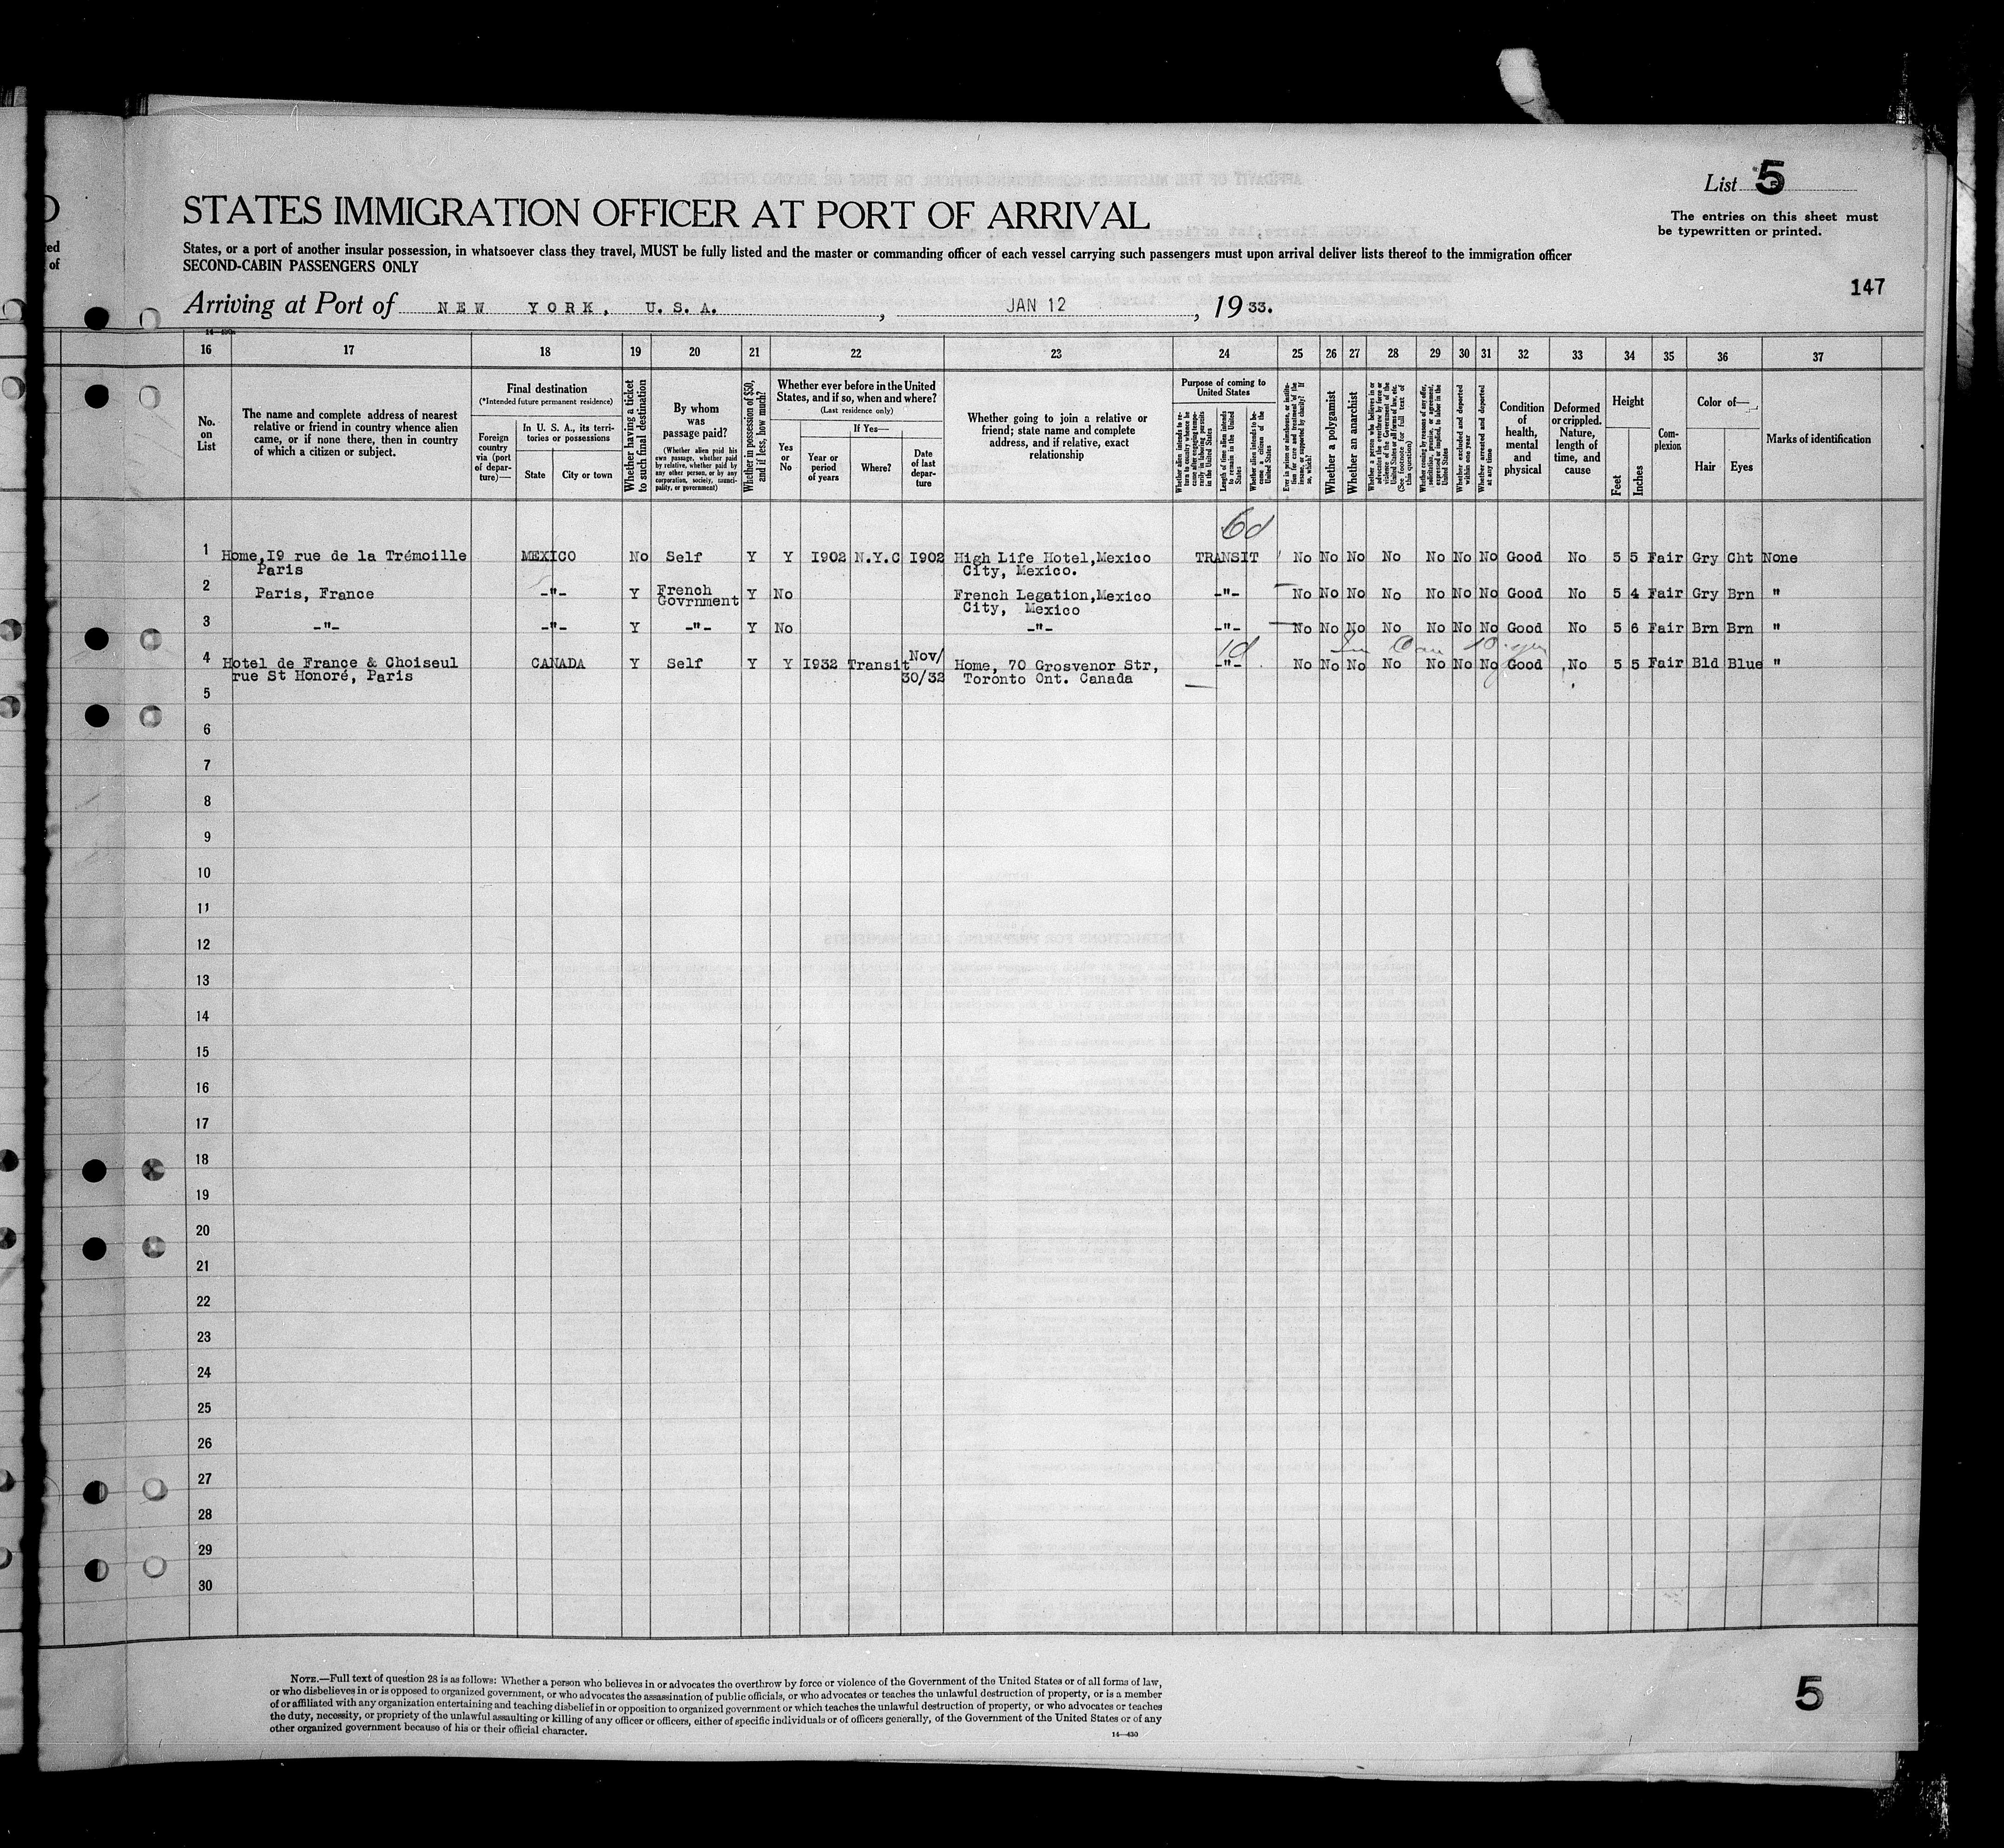 List 5
The entries on this sheet must
be typewritten or printed.
STATES IMMIGRATION OFFICER AT PORT OF ARRIVAL
States, or a port of another insular possession, in whatsoever class they travel, MUST be fully listed and the master or commanding officer of each vessel carrying such passengers must upon arrival deliver lists thereof to the immigration officer
SECOND-CABIN PASSENGERS ONLY
147
Arriving at Port of NEW YORK, U.S.A., JAN 12, 1933.
14—430
16 17 18 19 20 21 22 23 24 25 26 27 28 29 30 31 32 33 34 35 36 37
No. on List
The name and complete address of nearest relative or friend in country whence alien came, or if none there, then in country of which a citizen or subject.
Final destination
(*Intended future permanent residence)
Foreign country via (port of departure)—
In U. S. A., its territories or possessions
State
City or town
Whether having a ticket to such final destination
By whom was passage paid?
(Whether alien paid his own passage, whether paid by relative, whether paid by any other person, or by any corporation, society, municipality, or government)
Whether in possession of $50, and if less, how much?
Whether ever before in the United States, and if so, when and where?
(Last residence only)
Yes or No
If Yes—
Year or period of years
Where?
Date of last departure
Whether going to join a relative or friend; state name and complete address, and if relative, exact relationship
Purpose of coming to United States
Whether alien intends to return to country whence he came after engaging temporarily in laboring pursuits in the United States
Length of time alien intends to remain in the United States
Whether alien intends to become a citizen of the United States
Ever in prison or almshouse, or institution for care and treatment of the insane, or supported by charity? If so, which?
Whether a polygamist
Whether an anarchist
Whether a person who believes in or advocates the overthrow by force or violence of the Government of the United States or all forms of law, etc. (See footnote for full text of this question)
Whether coming by reasons of any offer, solicitation, promise, or agreement, expressed or implied, to labor in the United States
Whether excluded and deported within one year
Whether arrested and deported at any time
Condition of health, mental and physical
Deformed or crippled. Nature, length of time, and cause
Height
Feet
Inches
Complexion
Color of—
Hair
Eyes
Marks of identification
6d
1 Home, I9 rue de la Trémoille MEXICO No Self Y Y I902 N.Y.C I902 High Life Hotel, Mexico TRANSIT No No No No No No No Good No 5 5 Fair Gry Cht None
Paris City, Mexico.
2 Paris, France -"- Y French Y No French Legation, Mexico -"- No No No No No No No Good No 5 4 Fair Gry Brn "
Govrnment City, Mexico
3 -"- -"- Y -"- Y No -"- -"- No No No No No No No Good No 5 6 Fair Brn Brn "
1d
4 Hotel de France & Choiseul CANADA Y Self Y Y I932 Transit Nov/ Home, 70 Grosvenor Str, -"- No No No No No No No Good No 5 5 Fair Bld Blue "
rue St Honoré, Paris 30/32 Toronto Ont. Canada
5
6
7
8
9
10
11
12
13
14
15
16
17
18
19
20
21
22
23
24
25
26
27
28
29
30
NOTE.—Full text of question 28 is as follows: Whether a person who believes in or advocates the overthrow by force or violence of the Government of the United States or of all forms of law,
or who disbelieves in or is opposed to organized government, or who advocates the assassination of public officials, or who advocates or teaches the unlawful destruction of property, or is a member
of or affiliated with any organization entertaining and teaching disbelief in or opposition to organized government or which teaches the unlawful destruction of property, or who advocates or teaches
the duty, necessity, or propriety of the unlawful assaulting or killing of any officer or officers, either of specific individuals or of officers generally, of the Government of the United States or of any
other organized government because of his or their official character.
14—430
5